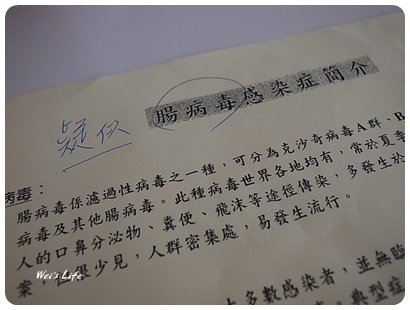 疑似
腸病毒感染症簡介
病毒：
腸病毒係濾過性病毒之一種，可分為克沙奇病毒A群、B
病毒及其他腸病毒。此種病毒世界各地均有，常於夏季
人的口鼻分泌物、糞便、飛沫等途徑傳染，多發生於
案，但很少見，人群密集處，易發生流行。
大多數感染者，並無臨
典型症
Wei's Life